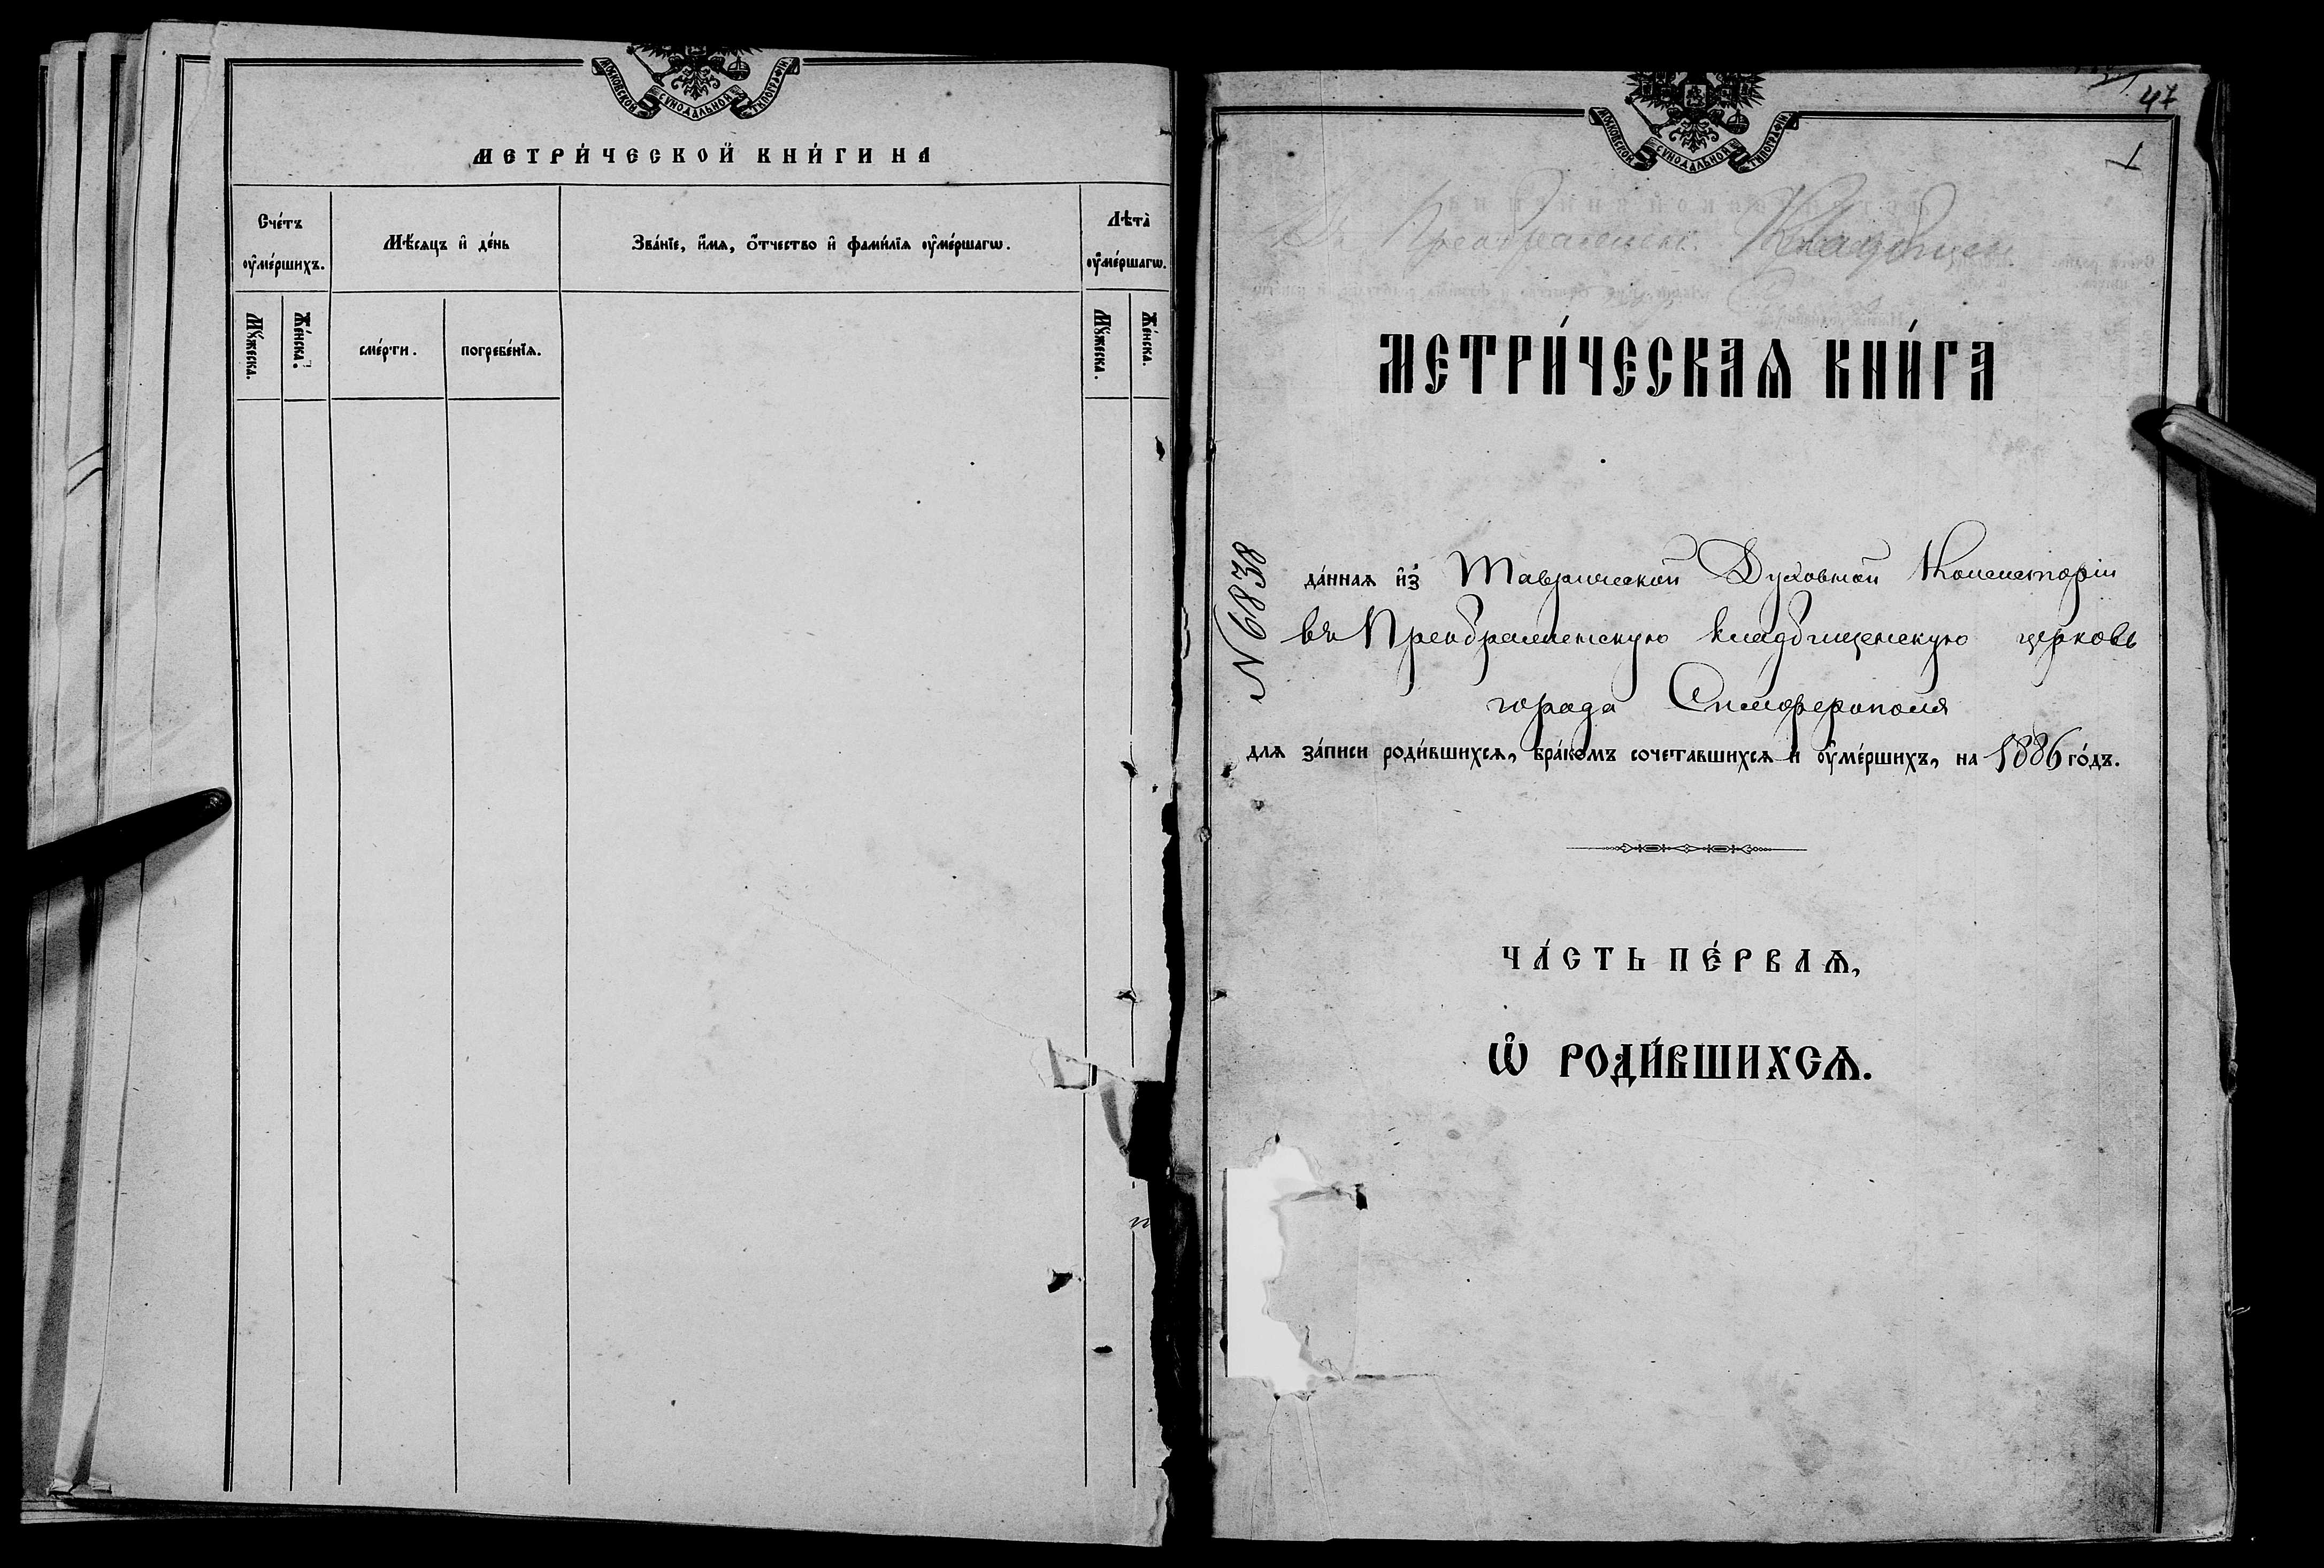 МОСКОВСКОЙ СѴНОДАЛЬНОЙ ТИПОГРАФІИ
МЕТРИ́ЧЕСКОЙ КНИ́ГИ НА
Сче́тъ ᲂу҆ме́ршихъ.
Мѣ́сяцъ и҆ де́нь
Зва́нїе, и҆́мя, ѻ҆́тчество и҆ фами́лїя ᲂу҆ме́ршагѡ.
Лѣта̀ ᲂу҆ме́ршагѡ.
Мꙋ́жеска.
Же́нска.
сме́рти.
погребе́нїѧ.
Мꙋ́жеска.
Же́нска.
47
1
МОСКОВСКОЙ СѴНОДАЛЬНОЙ ТИПОГРАФІИ
МЕТРИ́ЧЕСКАѦ КНИ́ГА
N 6838
да́ннаѧ и҆з̾ Таврической Духовной Консисторіи
въ Преображенскую кладбищенскую церковь
города Симферополя
длѧ за́писи роди́вшихсѧ, бра́комъ сочетавшихсѧ и҆ ᲂу҆ме́ршихъ, на 1886 го́дъ.
ЧА́СТЬ ПЕ́РВАѦ,
Ѡ҆ РОДИ́ВШИХСѦ.